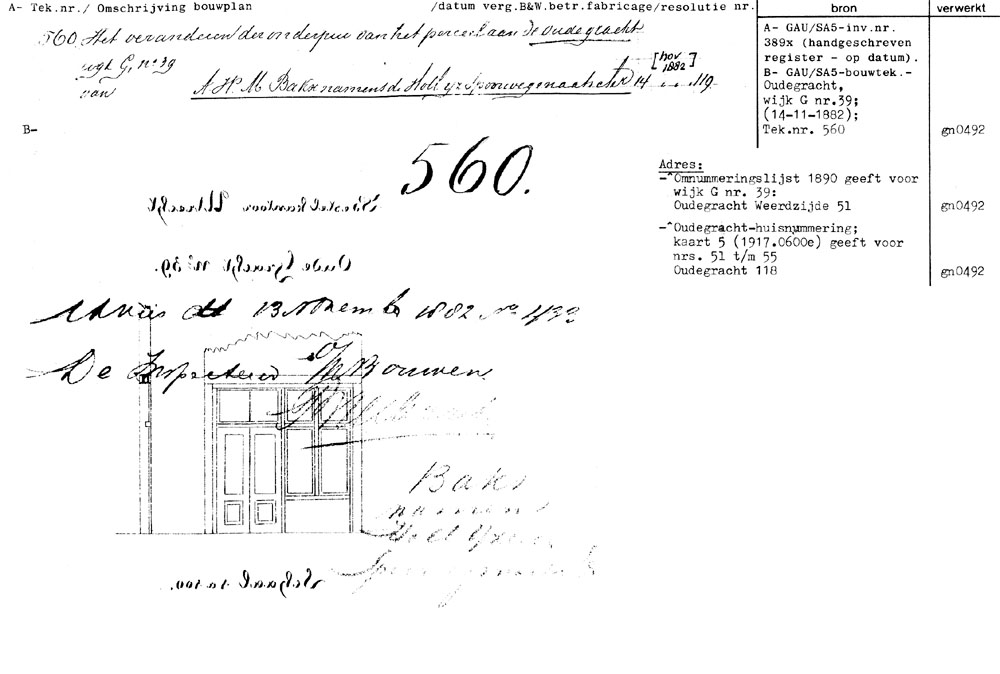 A- Tek.nr./ Omschrijving bouwplan /datum verg.B&W.betr.fabricage/resolutie nr.
bron
verwerkt
560 Het veranderen der onderpui van het perceel aan de oude gracht
wijk G, nº 39
van A. H. M. Baks namens de Holl. Yz. Spoorwegmaatsch. 14 [nov 1882] 119.
A- GAU/SA5-inv.nr.
389x (handgeschreven
register - op datum).
B- GAU/SA5-bouwtek.-
Oudegracht,
wijk G nr.39;
(14-11-1882);
Tek.nr. 560
gn0492
B-
560.
Bestelkantoor Utrecht
Oude Gracht nº 39.
Advies dd 13 November 1882 nº 439
De Inspecteur
Bouwen
Baks
namens
Holl Yzeren
Spoorweg
Schaal 1 a 100.
Adres:
-^Omnummeringslijst 1890 geeft voor
wijk G nr. 39:
Oudegracht Weerdzijde 51
gn0492
-^Oudegracht-huisnummering;
kaart 5 (1917.0600e) geeft voor
nrs. 51 t/m 55
Oudegracht 118
gn0492